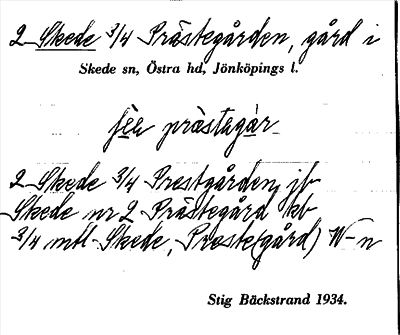 2 Skede 3/4 Prästegården, gård i
Skede sn, Östra hd, Jönköpings l.
prästagår
2 Skede 3/4 Prestgården, jb
Skede nr 2 Prästegård kb
3/4 mtl Skede, Preste(gård) W-n
Stig Bäckstrand 1934.